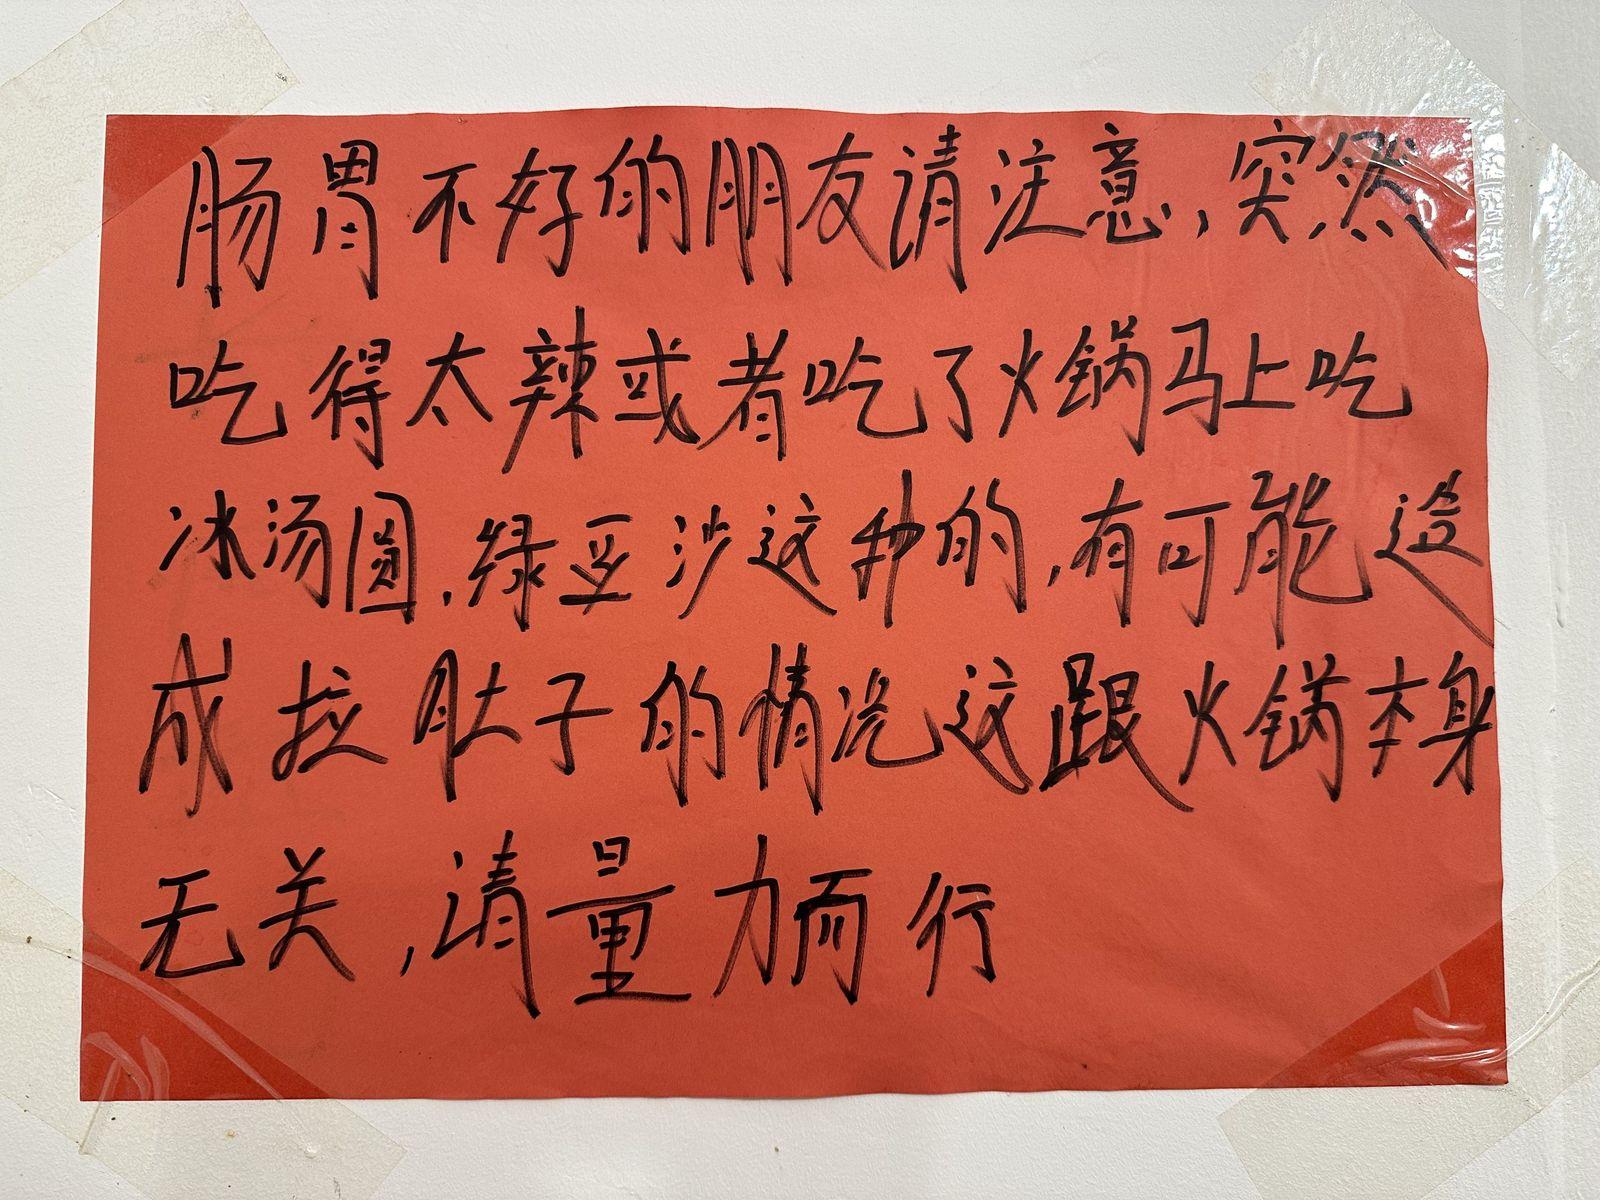 肠胃不好的朋友请注意,突然
吃得太辣或者吃了火锅马上吃
冰汤圆.绿豆沙这种的,有可能造
成拉肚子的情况这跟火锅本身
无关,请量力而行